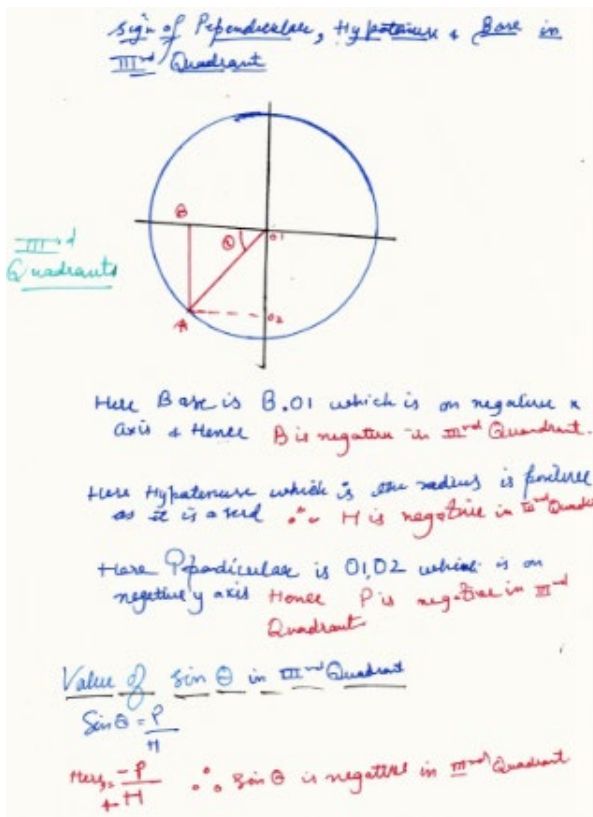 Sign of Pependiculare, Hypotenuse + Base in
IIIrd Quadrant
B
θ
01
IIIrd
Quadrants
A
02
Here Base is B.01 which is on negative x
axis + Hence B is negative in IIIrd Quandrant.
Here Hypatenuse which is the radius is positive
as it is a ∴ H is negative in IIIrd Quadr
Here Ppendicular is 01,02 which is on
negetive y axis Hence P is negative in IIIrd
Quadrant
Value of Sin θ in IIIrd Quadrant
Sin θ = P
H
Here, = -P
+H ∴ Sin θ is negative in IIIrd Quadrant